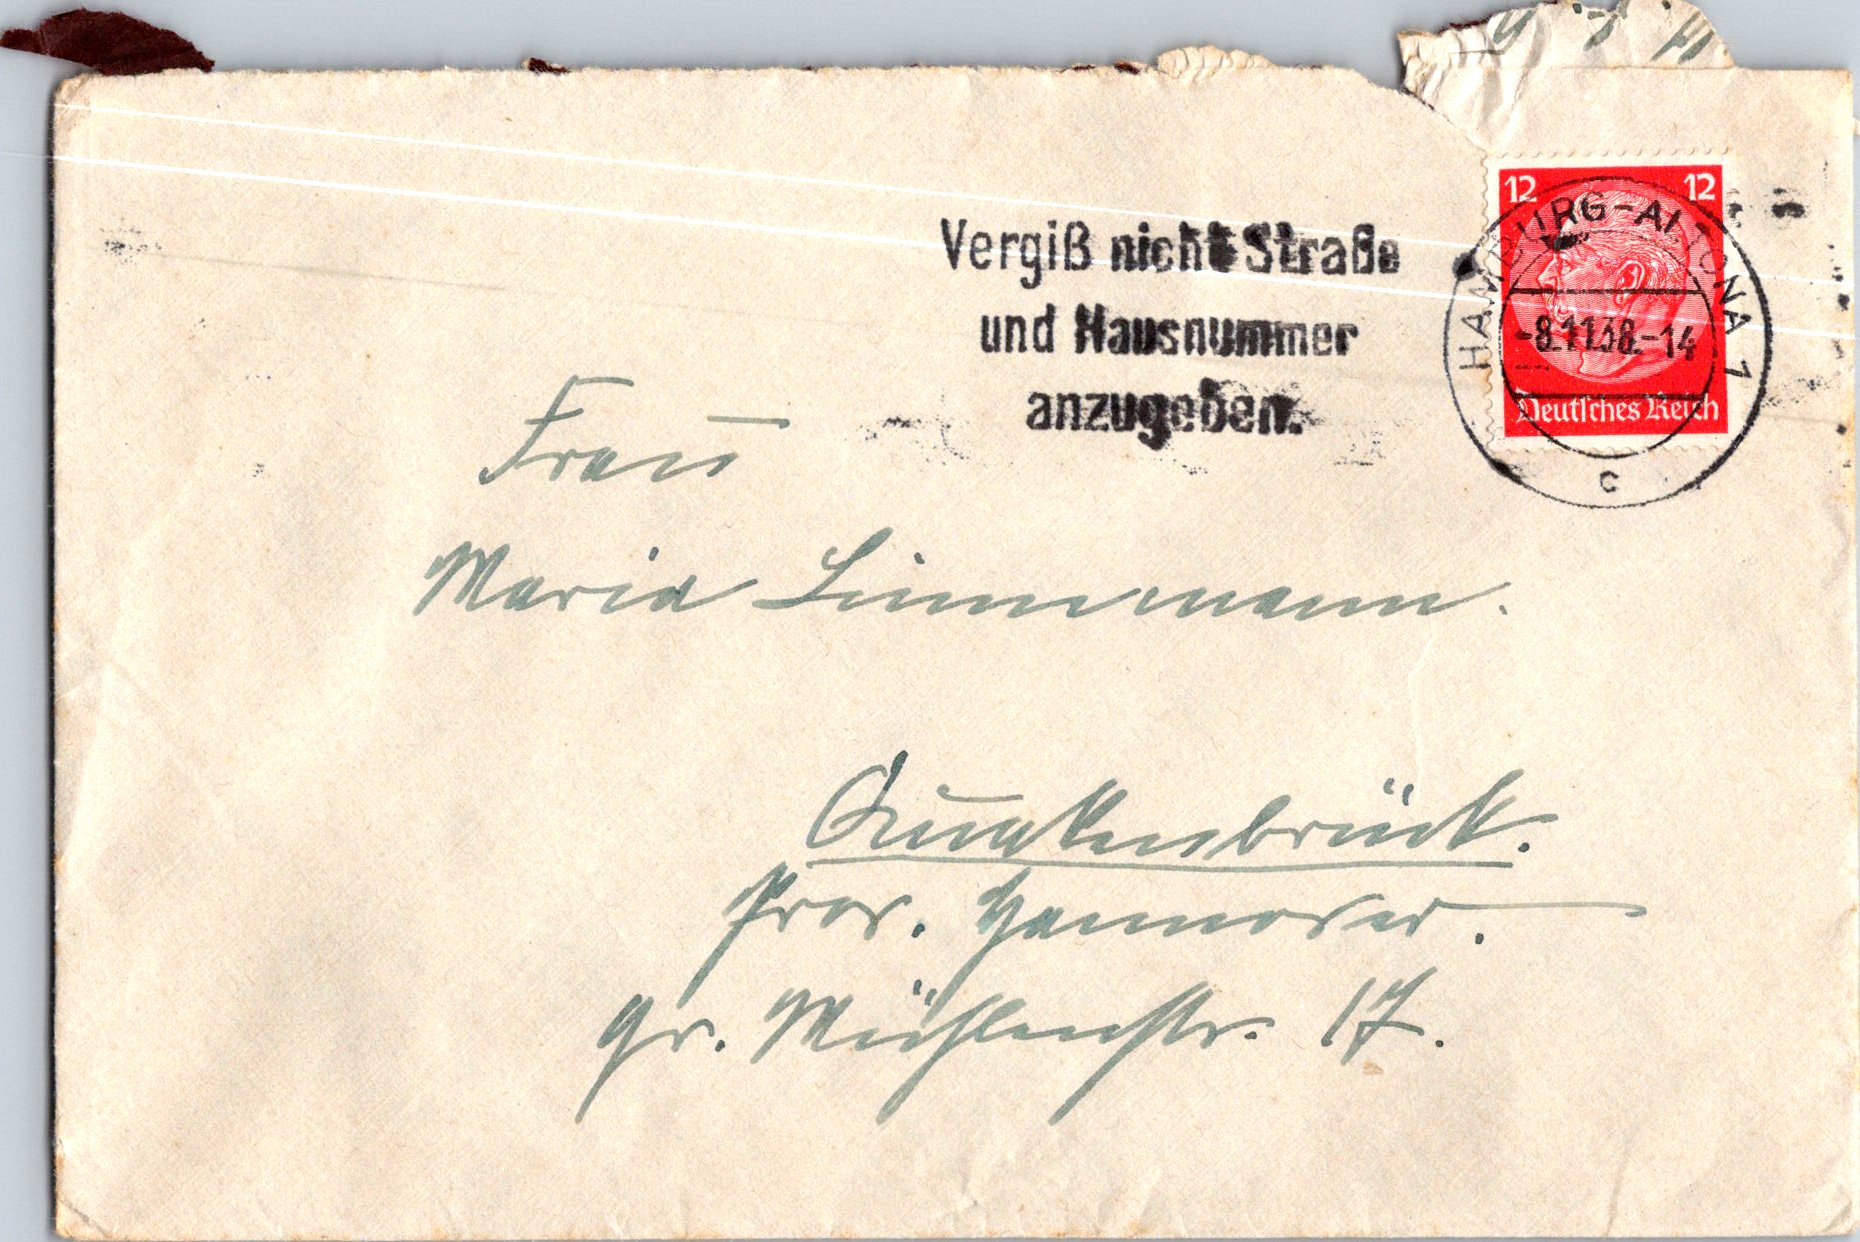 12 12
Vergiß nicht Straße
und Hausnummer
anzugeben.
HAMBURG-ALTONA 1
-8.11.38.-14
Deutsches Reich
c
Frau
Maria Linnemann.
Quakenbrück.
Prov. Hannover.
gr. Mühlenstr. 17.